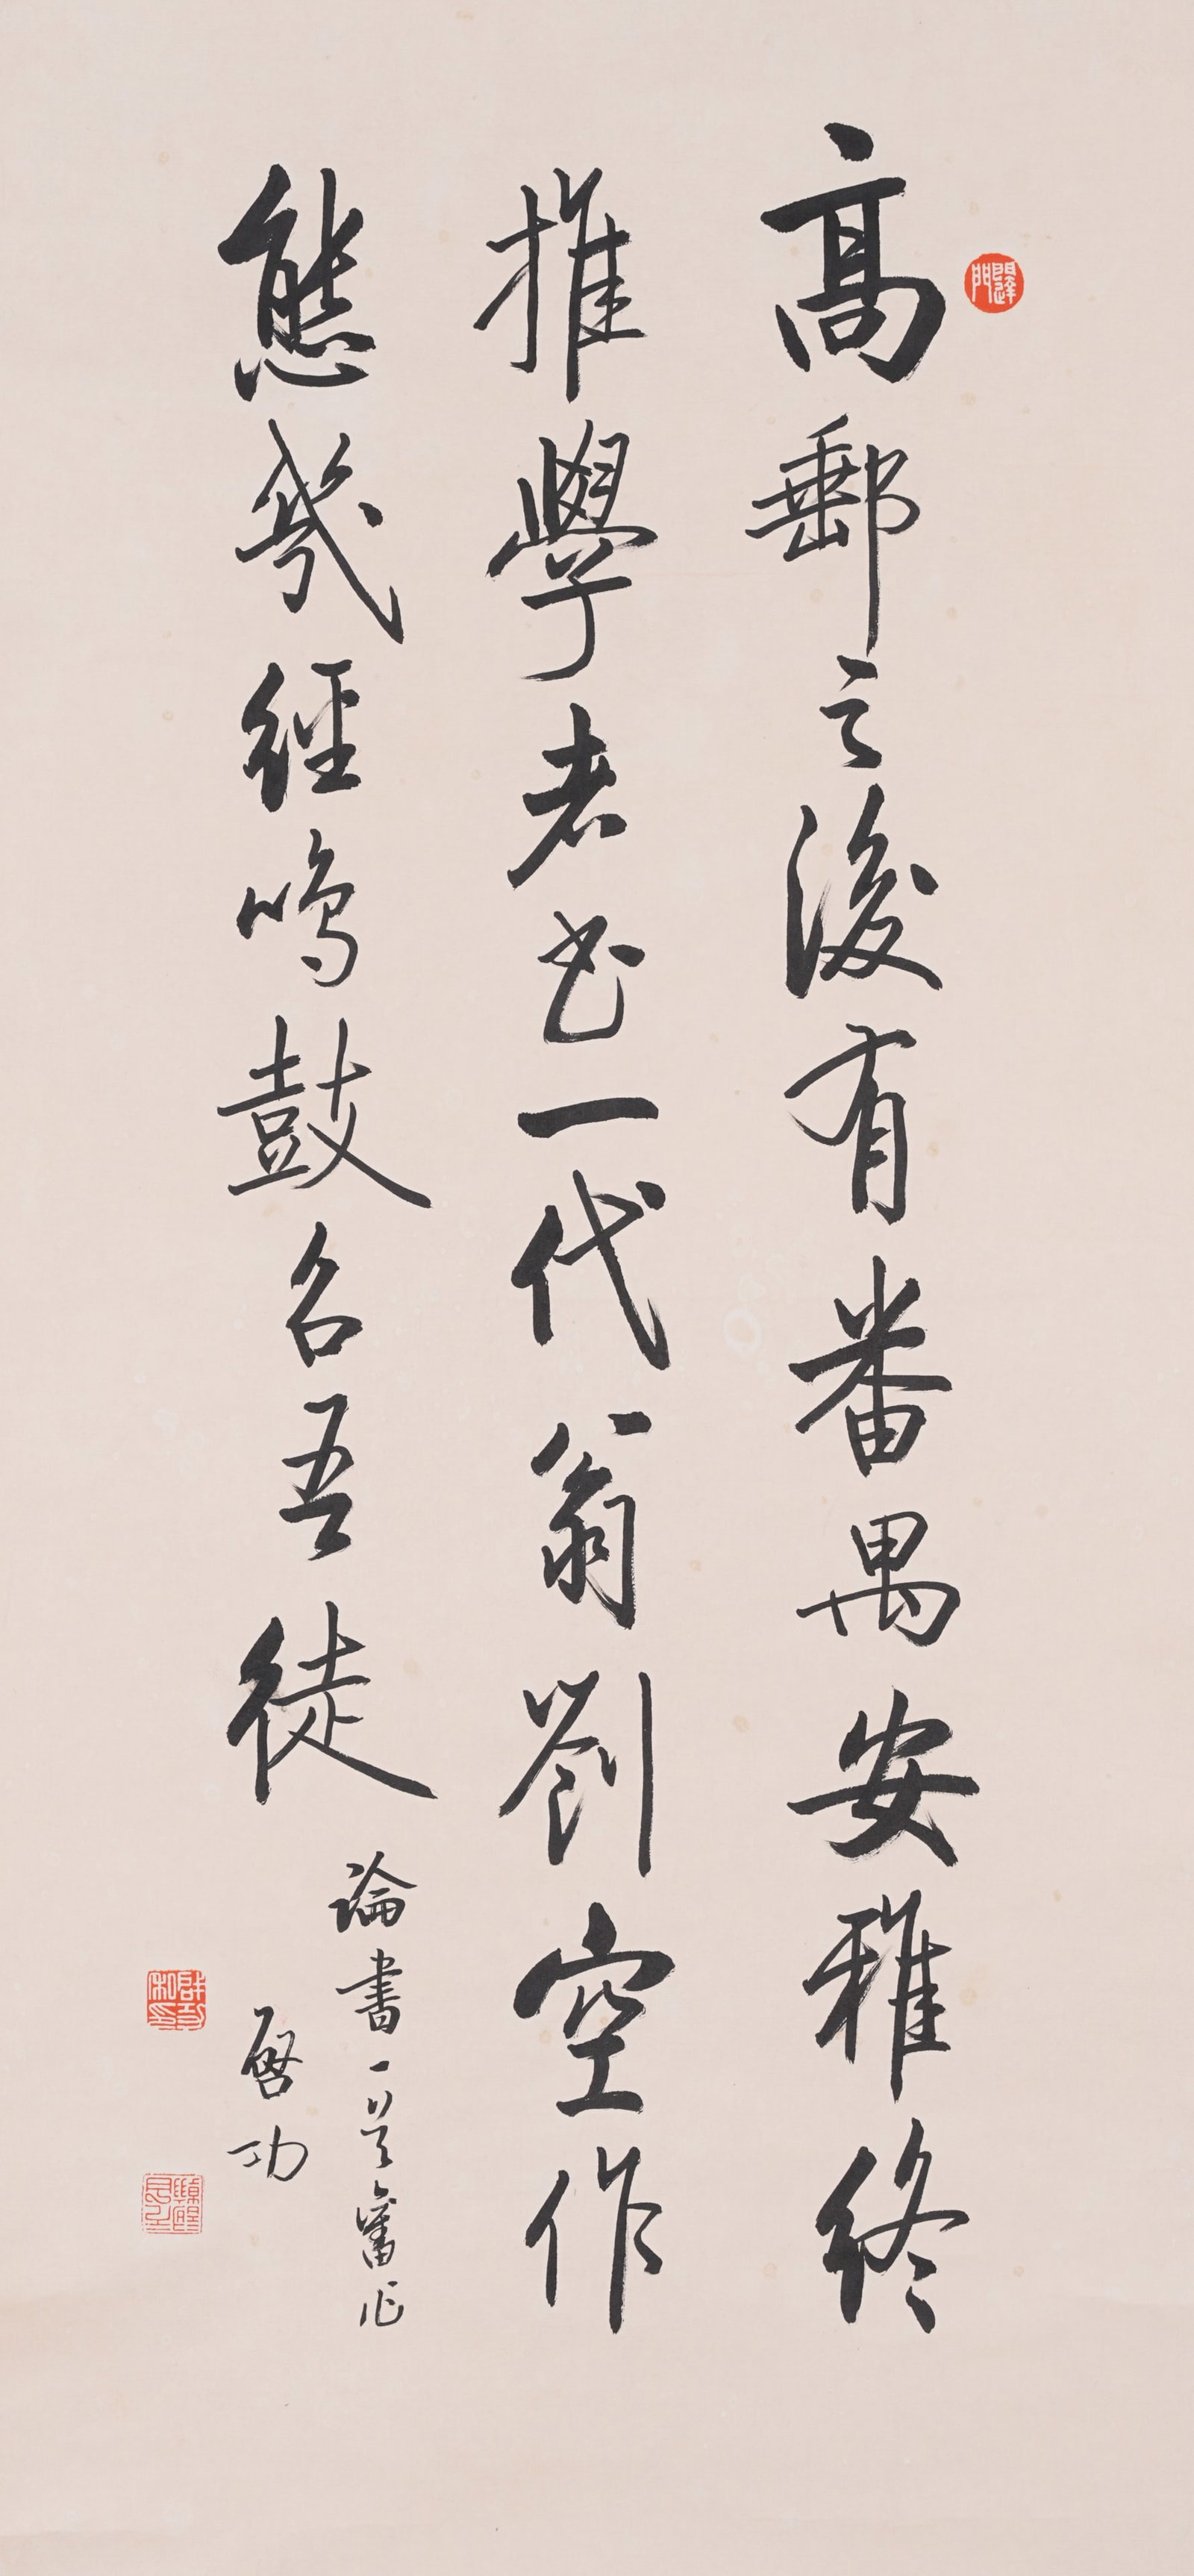 高郵之後有番禺安雅終
推學者書一代翁劉空作
態幾經鳴鼓召吾徒
論書一首舊作
啓功